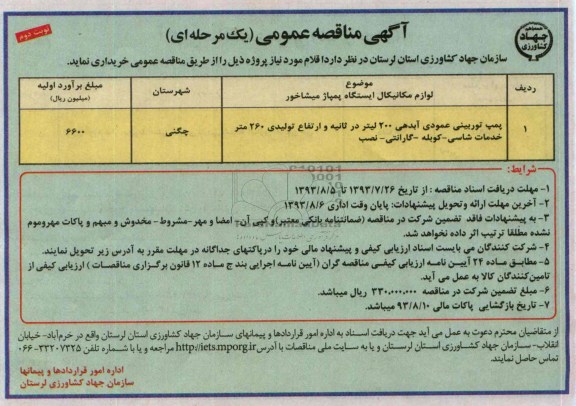 جهاد کشاورزی
آگهی مناقصه عمومی (یک مرحله ای)
نوبت دوم
سازمان جهاد کشاورزی استان لرستان در نظر دارد اقلام مورد نیاز پروژه ذیل را از طریق مناقصه عمومی خریداری نماید.
ردیف
موضوع
لوازم مکانیکال ایستگاه پمپاژ میشاخور
شهرستان
مبلغ برآورد اولیه
(میلیون ریال)
۱
پمپ توربینی عمودی آبدهی ۲۰۰ لیتر در ثانیه و ارتفاع تولیدی ۲۶۰ متر
خدمات شاسی-کوبله -گارانتی- نصب
چگنی
۶۶۰۰
شرایط:
۱- مهلت دریافت اسناد مناقصه : از تاریخ ۱۳۹۳/۷/۲۶ تا ۱۳۹۳/۸/۵
۲- آخرین مهلت ارائه وتحویل پیشنهادات: پایان وقت اداری ۱۳۹۳/۸/۶
۳- به پیشنهادات فاقد تضمین شرکت در مناقصه (ضمانتنامه بانکی معتبر)و کپی آن- امضا و مهر-مشروط - مخدوش و مبهم و پاکات مهروموم
نشده مطلقا ترتیب اثر داده نخواهد شد.
۴- شرکت کنندگان می بایست اسناد ارزیابی کیفی و پیشنهاد مالی خود را درپاکتهای جداگانه در مهلت مقرر به آدرس زیر تحویل نمایند.
۵- مطابق ماده ۲۴ آیین نامه ارزیابی کیفی مناقصه گران (آیین نامه اجرایی بند ج ماده ۱۲ قانون برگزاری مناقصات ) ارزیابی کیفی از
تامین کنندگان کالا به عمل می آید.
۶- مبلغ تضمین شرکت در مناقصه ۳۳۰،۰۰۰،۰۰۰ ریال میباشد.
۷- تاریخ بازگشایی پاکات مالی ۹۳/۸/۱۰ میباشد.
از متقاضیان محترم دعوت به عمل می آید جهت دریافت اسناد به اداره امور قراردادها و پیمانهای سازمان جهاد کشاورزی استان لرستان واقع در خرم آباد- خیابان
انقلاب- سازمان جهاد کشاورزی استان لرستان و یا به سایت ملی مناقصات با آدرس http://iets.mporg.ir مراجعه و یا با شماره تلفن ۳۳۲۰۷۳۲۵-۰۶۶
تماس حاصل نمایند.
اداره امور قراردادها و پیمانها
سازمان جهاد کشاورزی لرستان